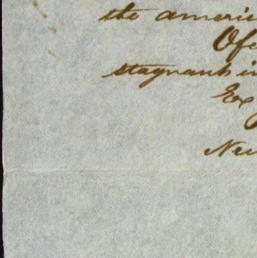 the americ
Of
stagnant i
Ex
New